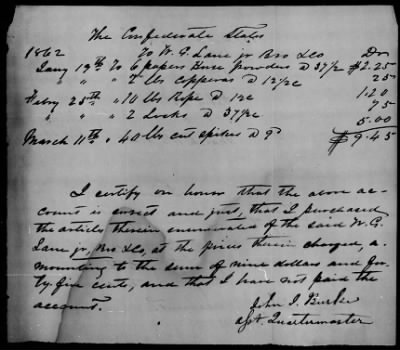 The Confederate States
1862 To W. G. Lane jr Bro & Co Dr
Jany 19th To 6 papers Powders @ 37½ $2.25
" " " 2 lbs Copperas @ 12½c 25
Feby 25th " 10 lbs Rope @ 12c 1.20
" " " 2 Locks @ 37½c 75
March 11th " 40 lbs cut spikes @ 5.00
$9.45
I certify on honor that the above ac-
count is correct and just, that I purchased
the articles therein enumerated of the said W. G.
Lane jr, Bro & Co, at the prices therein charged, a-
mounting to the sum of nine dollars and for-
ty-five cents, and that I have not paid the
account.
John I. Burke
asst. Quartermaster